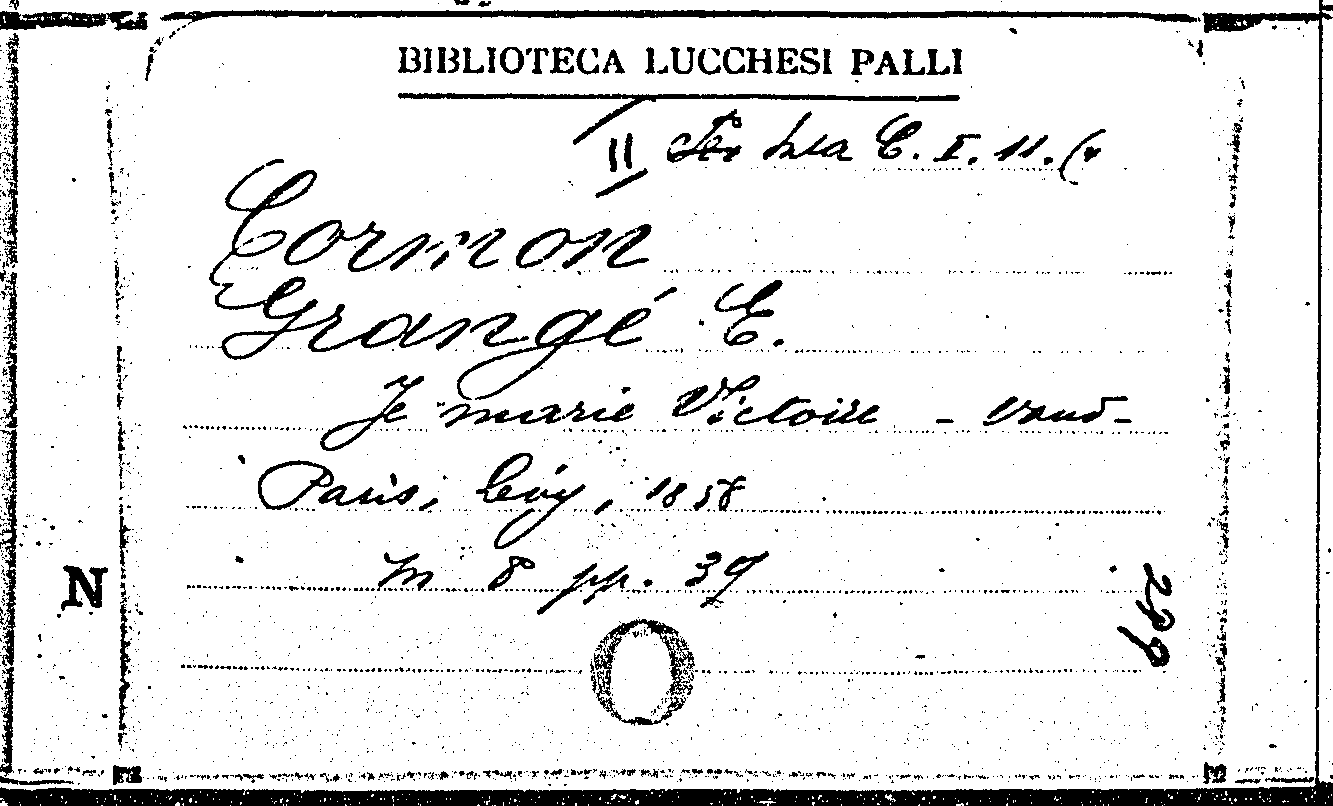 BIBLIOTECA LUCCHESI PALLI
II C. I. 11. (
Cormon
Grangé E.
Je marie Victoire - vaud-
Paris, Lévy, 1858
in 8 pp. 39
N
299